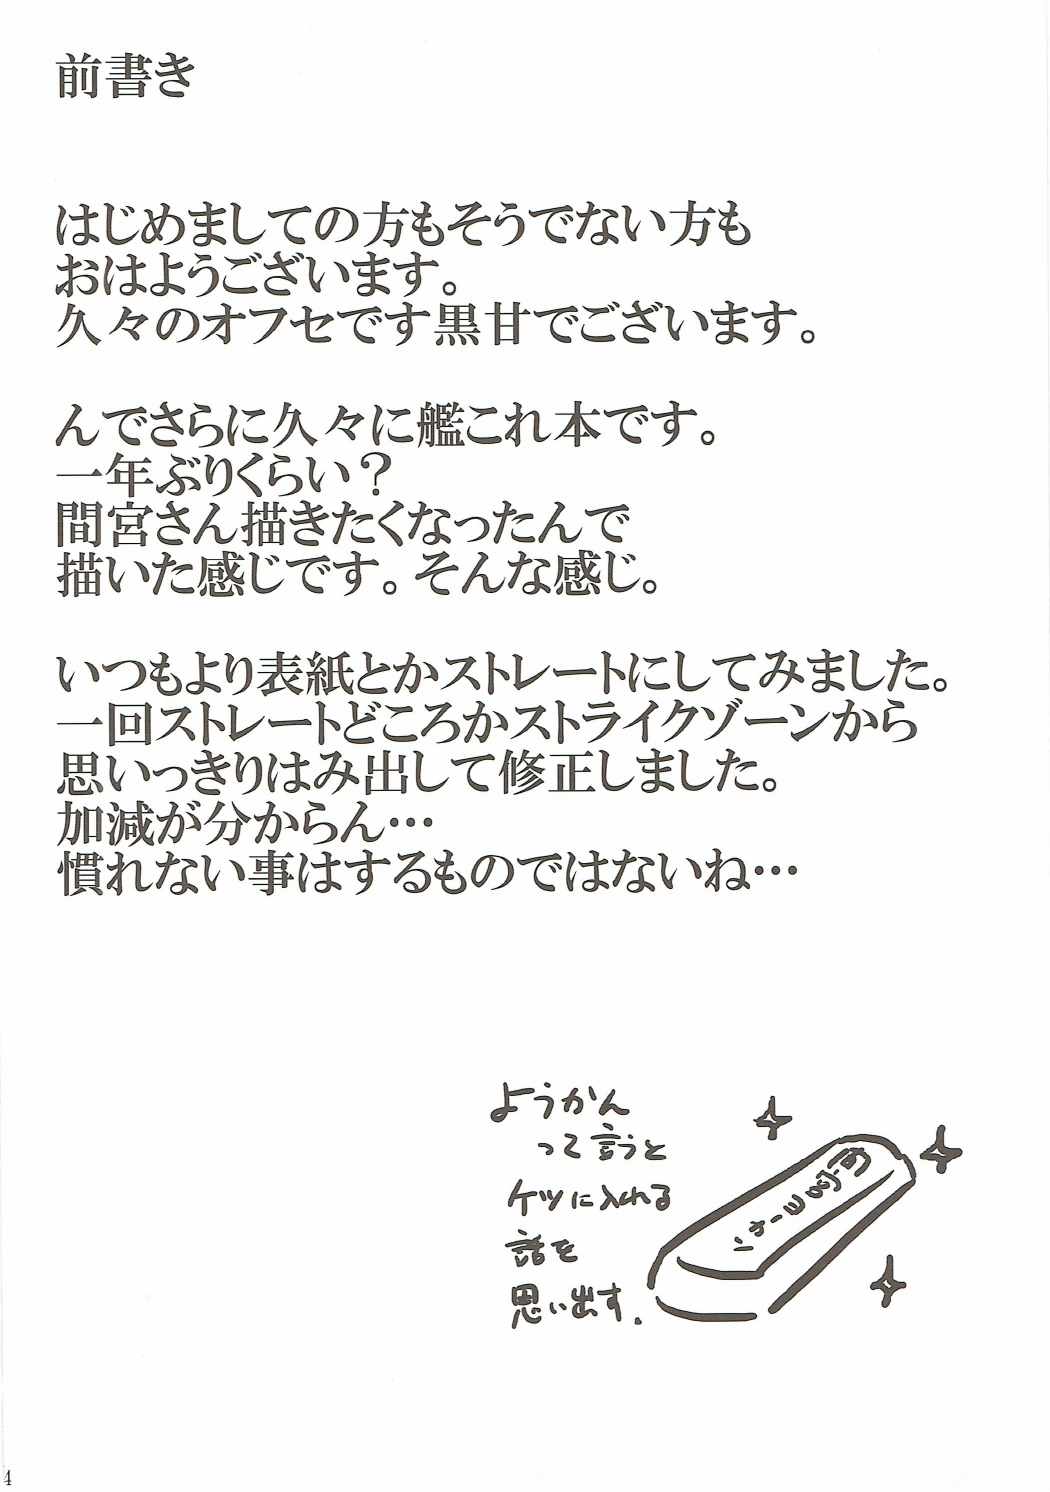 前書き
はじめましての方もそうでない方も
おはようございます。
久々のオフセです黒甘でございます。
んでさらに久々に艦これ本です。
一年ぶりくらい？
間宮さん描きたくなったんで
描いた感じです。そんな感じ。
いつもより表紙とかストレートにしてみました。
一回ストレートどころかストライクゾーンから
思いっきりはみ出して修正しました。
加減が分からん…
慣れない事はするものではないね…
ようかん
って言うと
ケツに入れる
話を
思い出す.
4